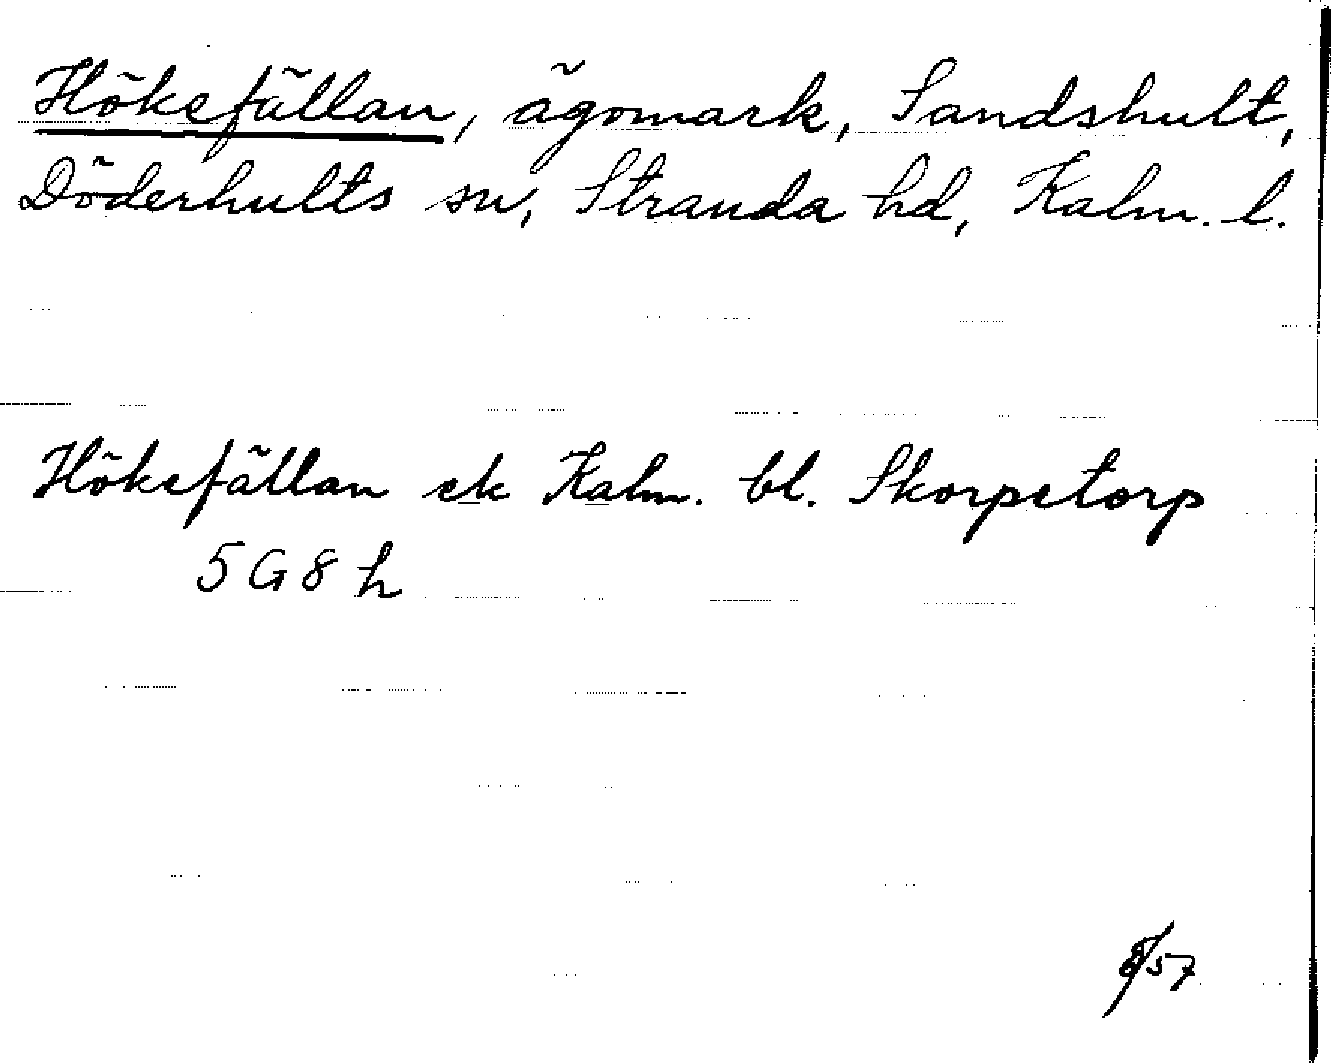 Höksfällan, ägomark, Sandshult,
Döderhults sn, Stranda hd, Kalm. l.
Höksfällan ek Kalm. bl. Skorpetorp
5G8h